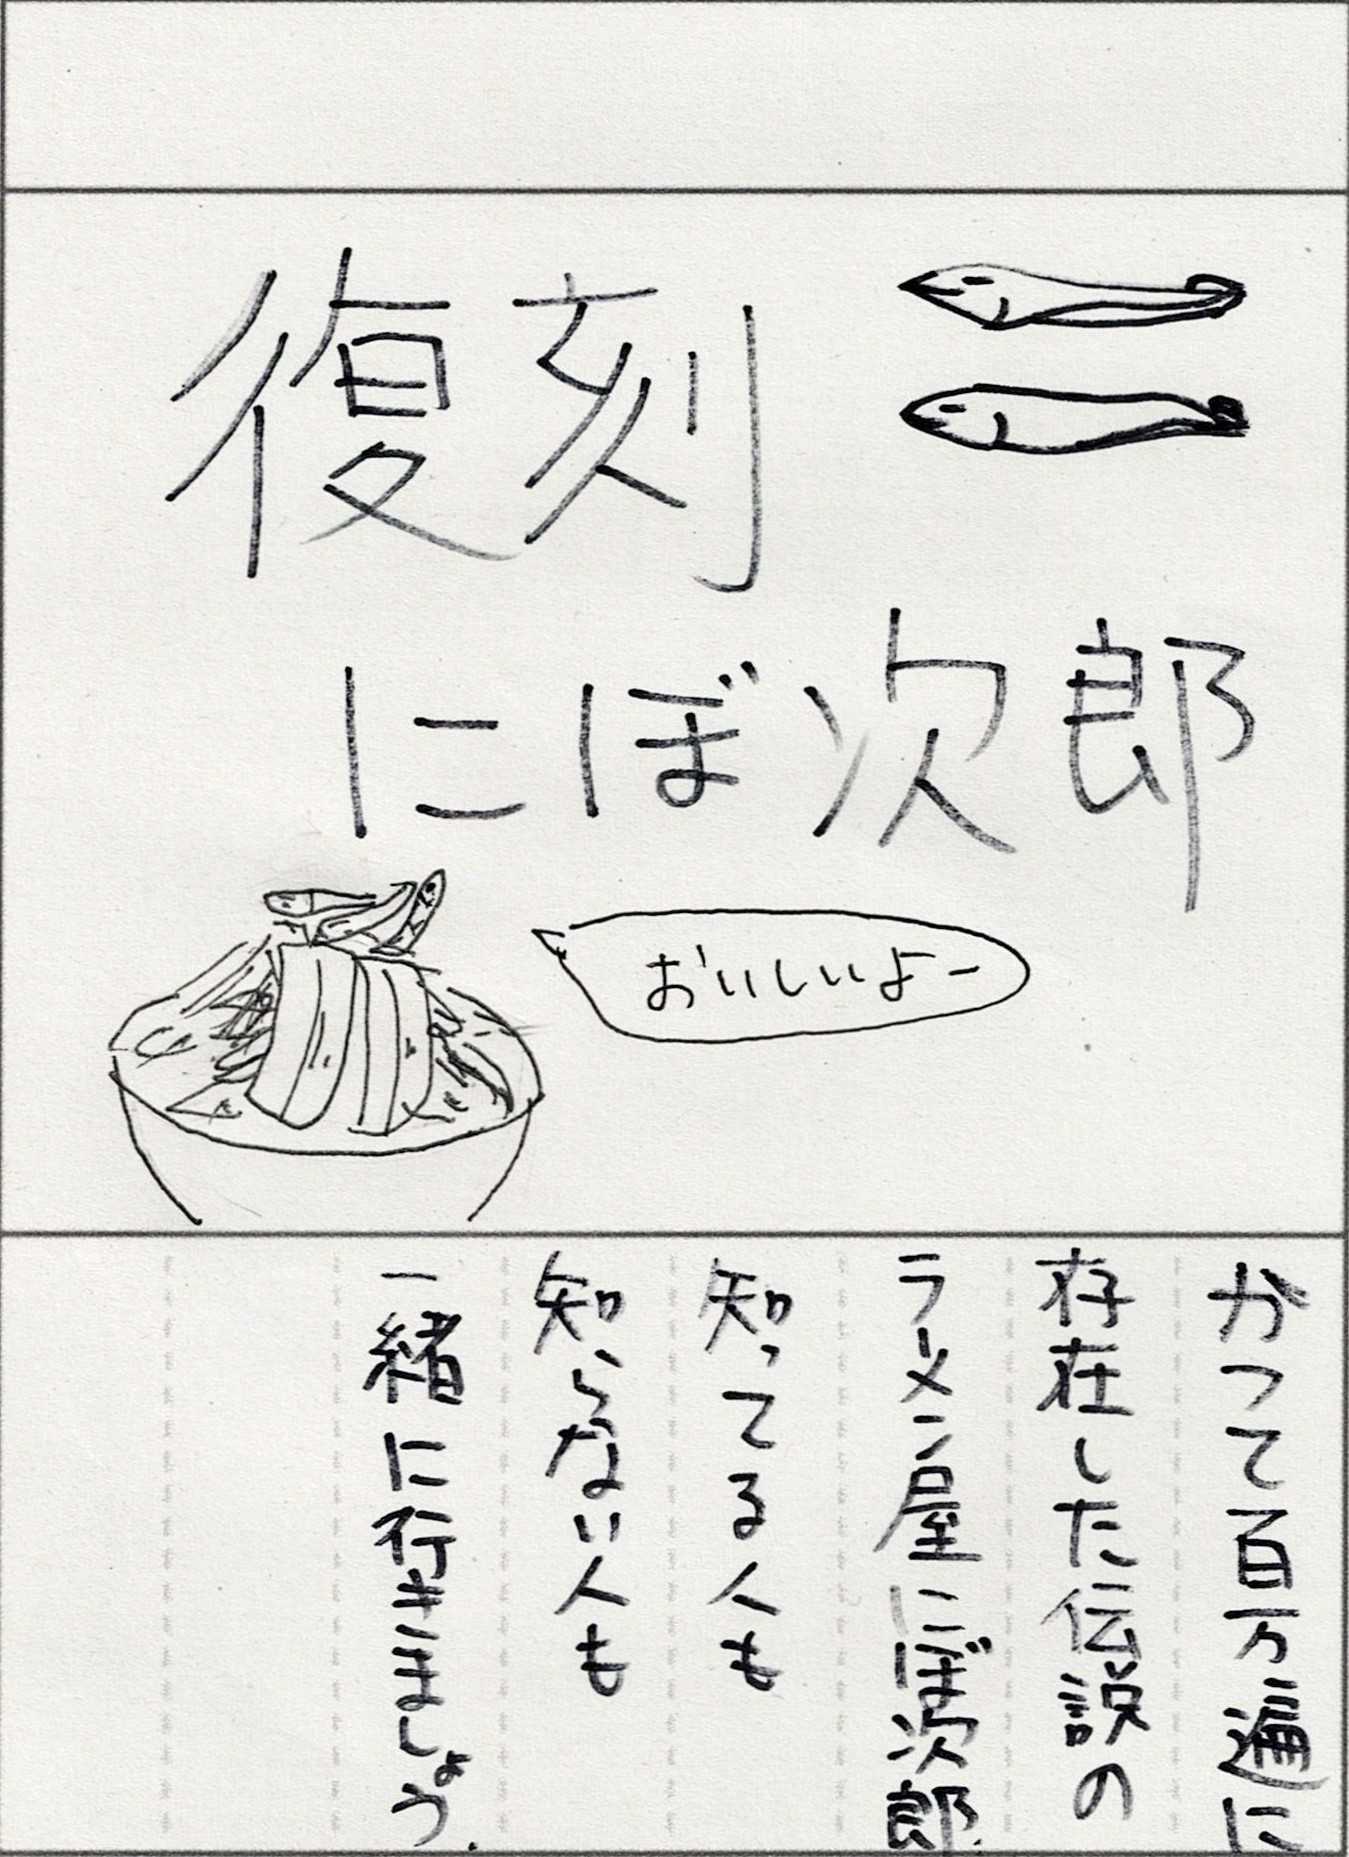 復刻
にぼ次郎
おいしいよー
かつて百万遍に
存在した伝説の
ラーメン屋にぼ次郎
知ってる人も
知らない人も
一緒に行きましょう.